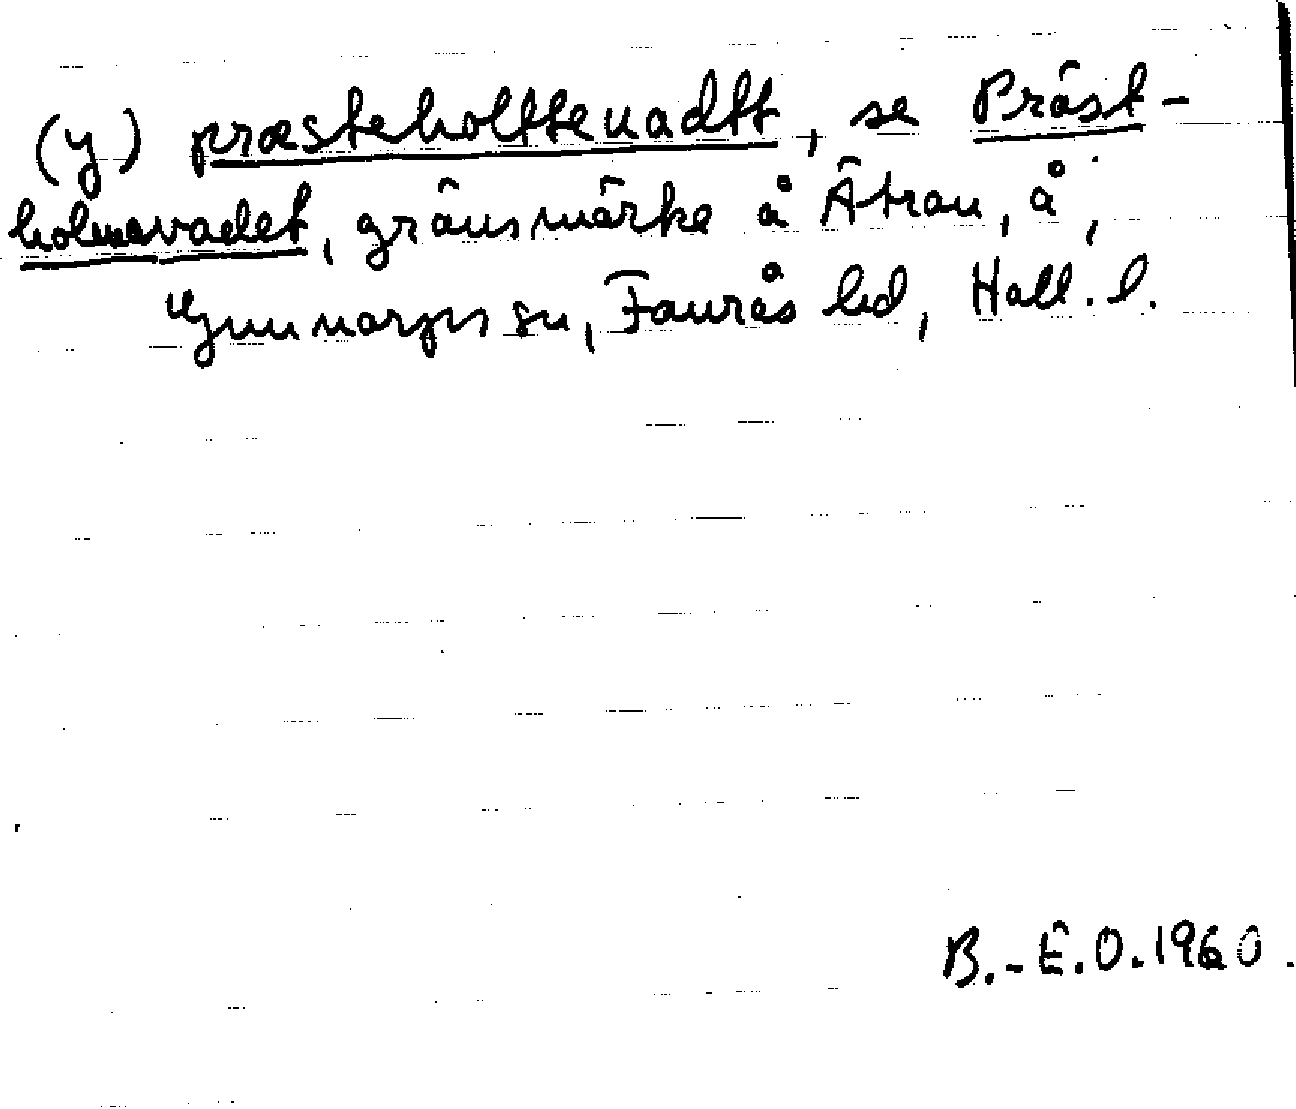 (y) præsteholtteuadtt, se Präst-
holmavadet, gränsmärke å Ätran, å,
Gunnarps sn, Faurås hd, Hall. l.
B.-E.O.1960.